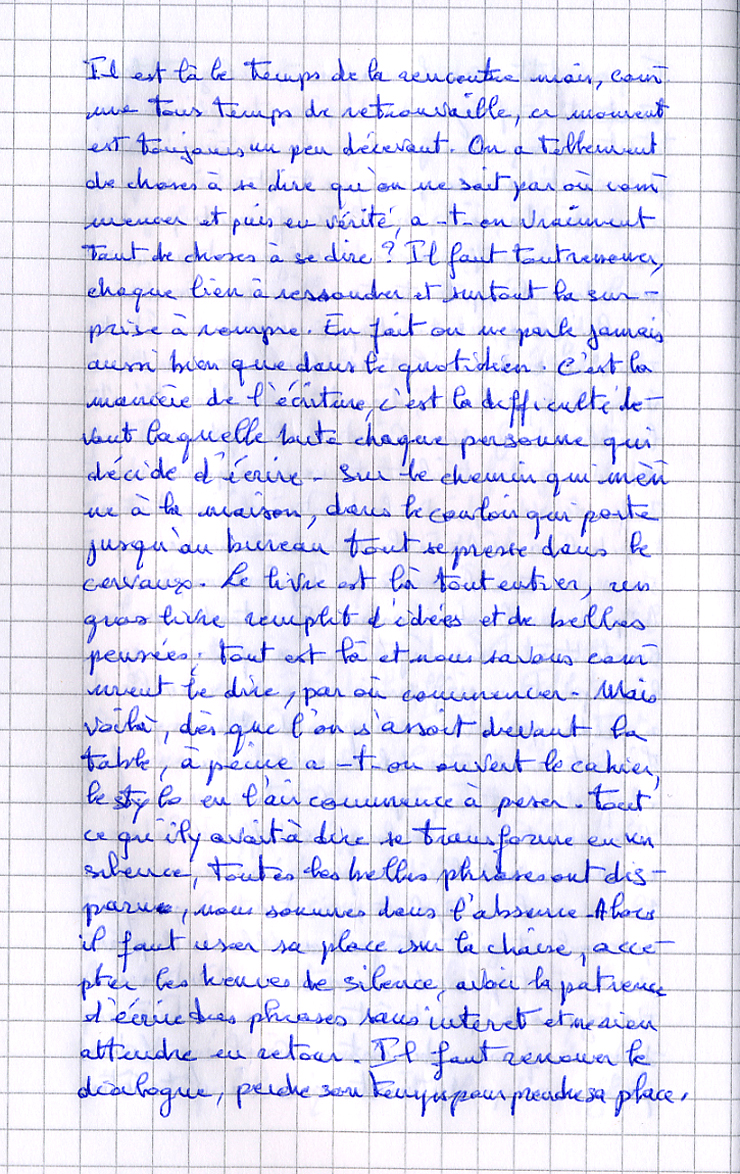 Il est là le temps de la rencontre mais, com̄
me tous temps de retrouvaille, ce moment
est toujours un peu décevant. On a tellement
de choses à se dire qu'on ne sait par où com̄
mencer et puis en vérité, a-t-on vraiment
tant de choses à se dire ? Il faut tout renouer,
chaque lien à ressouder et surtout la sur-
prise à rompre. En fait on ne parle jamais
aussi bien que dans le quotidien. C'est la
manière de l'écriture, c'est la difficulté de-
vant laquelle bute chaque personne qui
décide d'écrire - Sur le chemin qui mèn̄
ne à la maison, dans le couloir qui porte
jusqu'au bureau tout se presse dans le
cerveaux. Le livre est là tout entier, un
gros livre remplit d'idées et de belles
pensées ; tout est là et nous savons com̄
ment le dire, par où commencer - Mais
voilà, dès que l'on s'assoit devant la
table, à peine a-t-on ouvert le cahier,
le stylo en l'air commence à peser. Tout
ce qu'il y avait à dire se transforme en un
silence, toutes les belles phrases ont dis-
parue, nous sommes dans l'absence. Alors
il faut user sa place sur la chaise, acce-
pter les heures de silence, avoir la patience
d'écrire des phrases sans interet et ne rien
attendre en retour. Il faut renouer le
dialogue, perdre son temps pour prendre sa place.